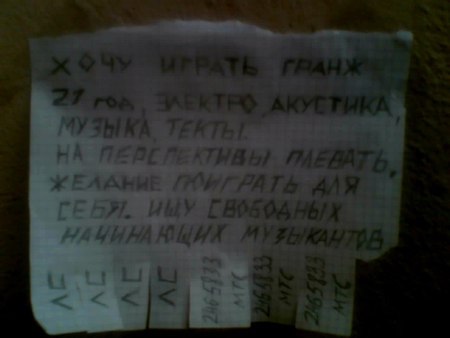 ХОЧУ ИГРАТЬ ГРАНЖ
21 ГОД, ЭЛЕКТРО АКУСТИКА,
МУЗЫКА, ТЕКТЫ.
НА ПЕРСПЕКТИВЫ ПЛЕВАТЬ.
ЖЕЛАНИЕ ПОИГРАТЬ ДЛЯ
СЕБЯ. ИЩУ СВОБОДНЫХ
НАЧИНАЮЩИХ МУЗЫКАНТОВ
ЛС
ЛС
ЛС
ЛС
2465833
МТС
2465833
МТС
2465833
МТС